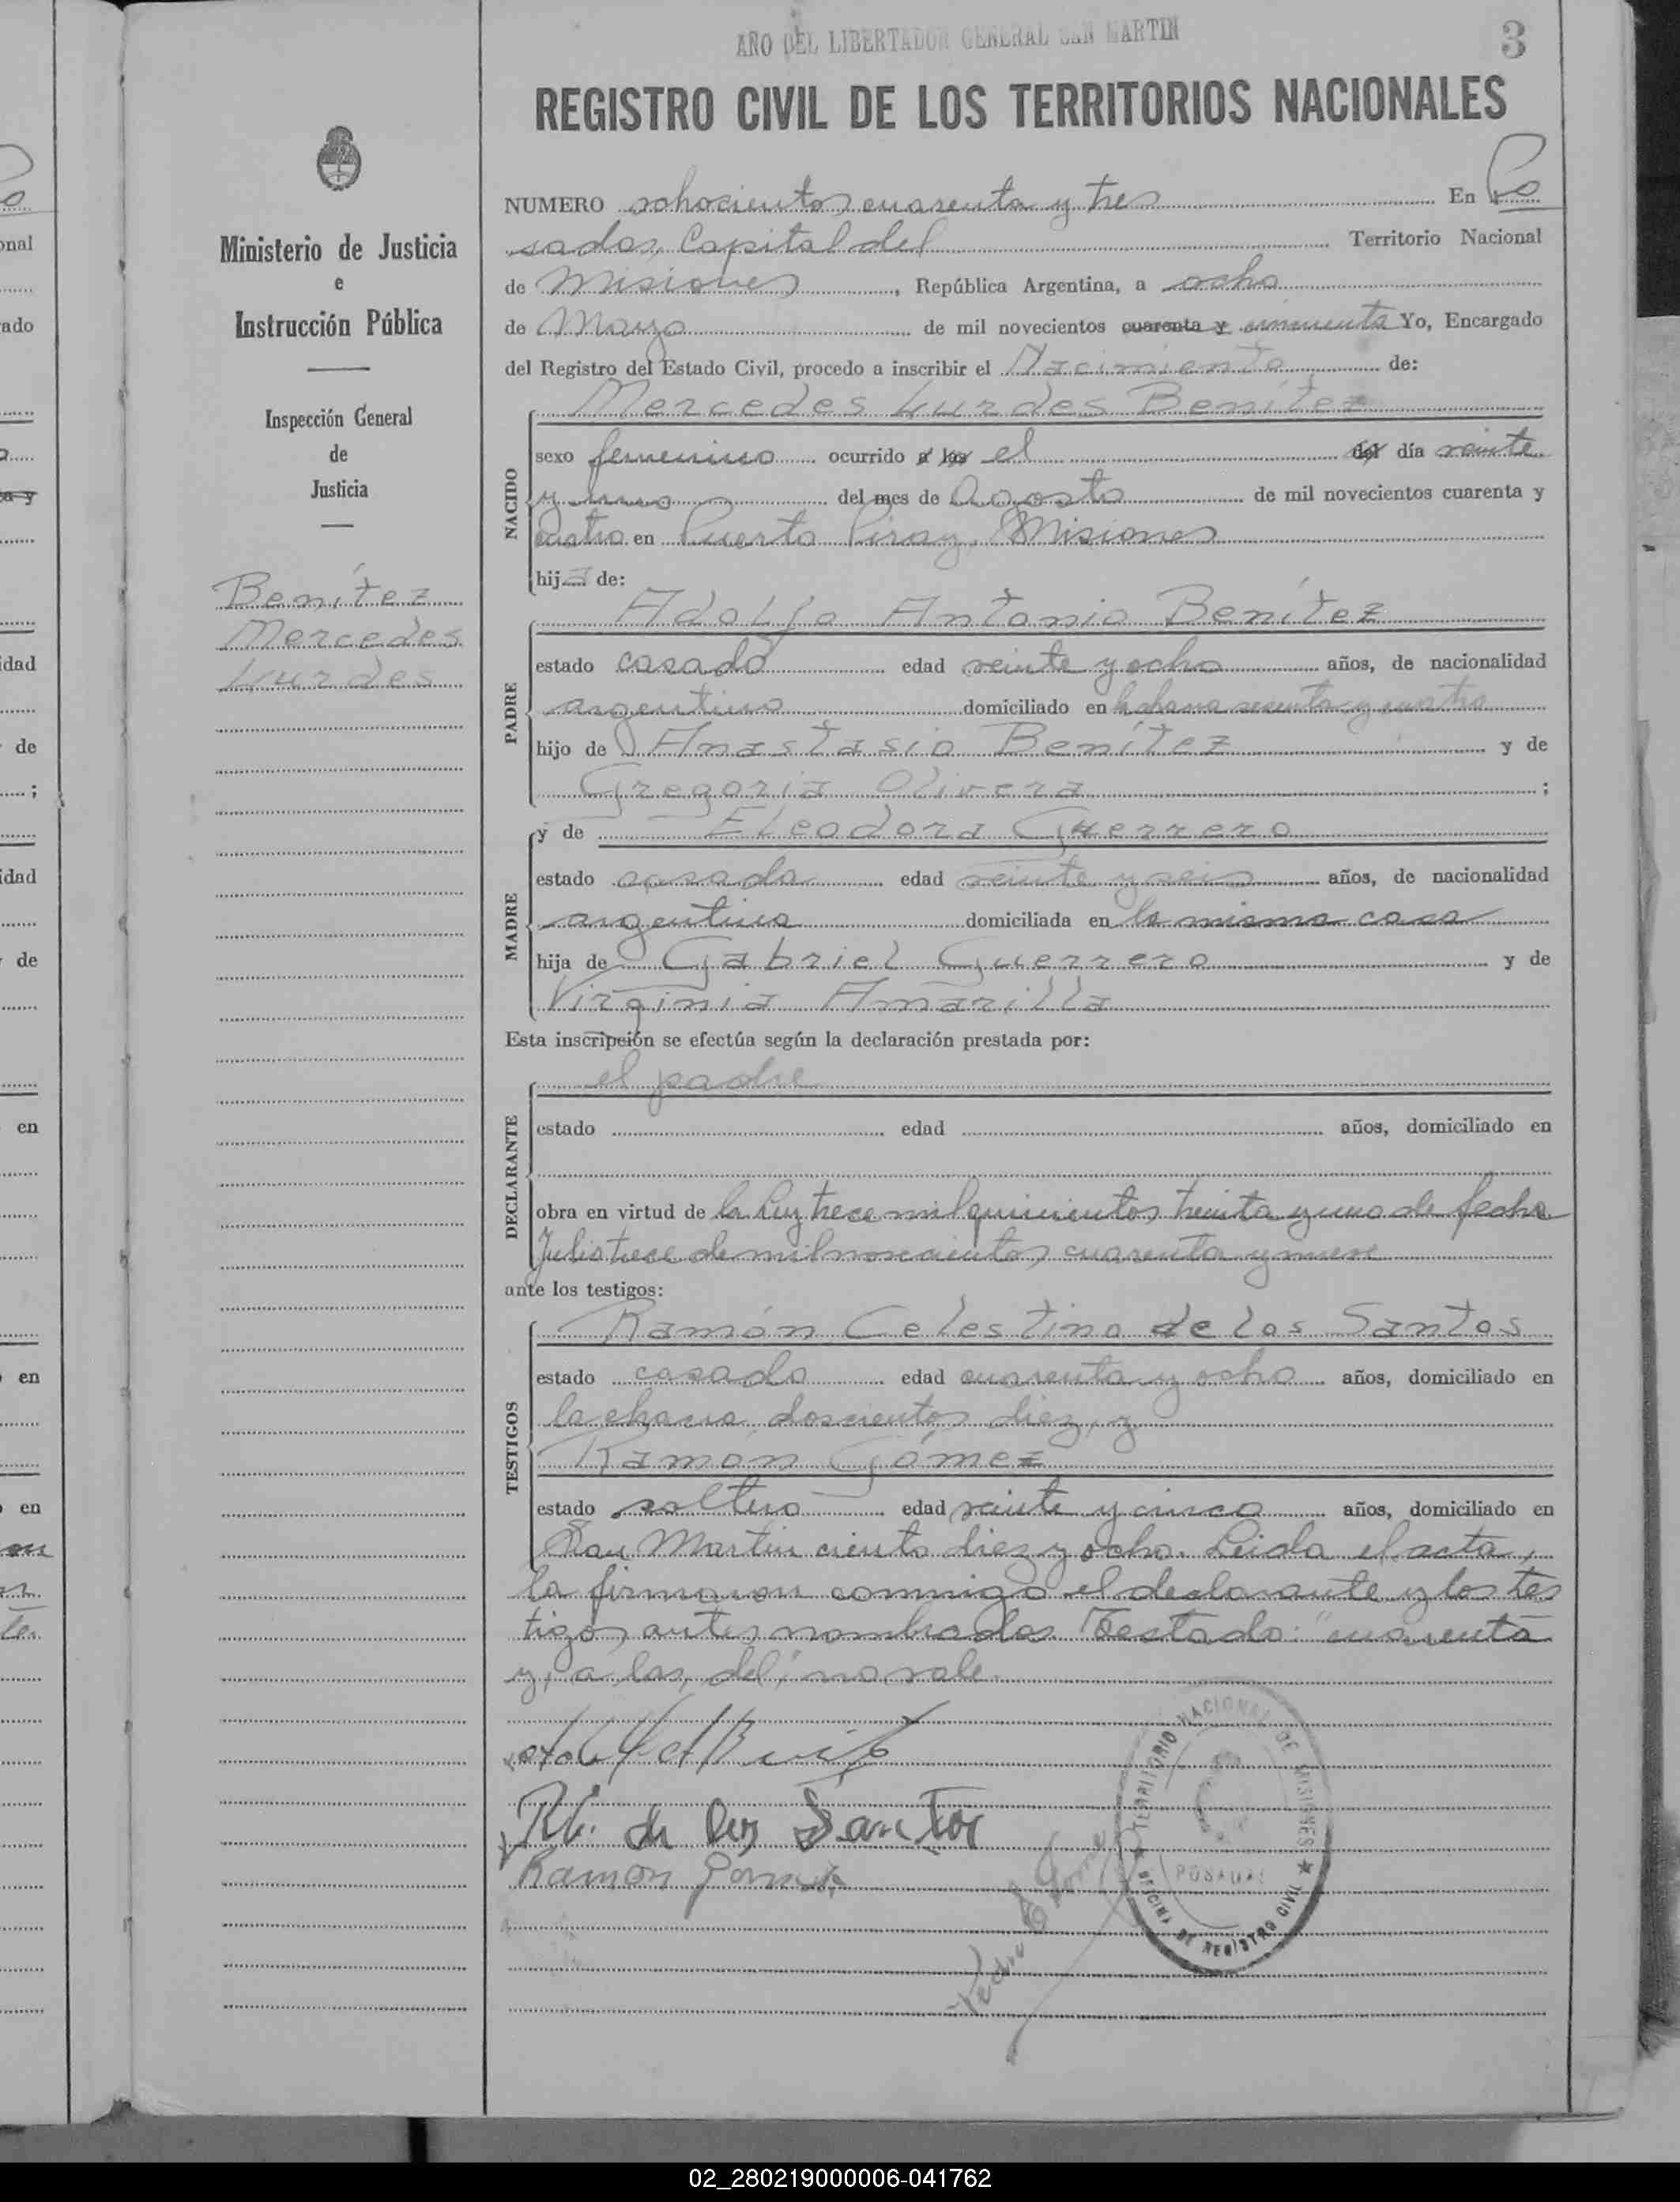 AÑO DEL LIBERTADOR GENERAL SAN MARTIN
3
REGISTRO CIVIL DE LOS TERRITORIOS NACIONALES
Ministerio de Justicia
e
Instrucción Pública
Inspección General
de
Justicia
Benítez
Mercedes
Lurdes
NUMERO ochocientos cuarenta y tres En Po
sadas, Capital del Territorio Nacional
de Misiones, República Argentina, a ocho
de Mayo de mil novecientos cuarenta y cincuenta Yo, Encargado
del Registro del Estado Civil, procedo a inscribir el Nacimiento de:
Mercedes Lurdes Benítez
NACIDO
sexo femenino ocurrido a las el del día veinte
y uno del mes de Agosto de mil novecientos cuarenta y
cuatro en Puerto Piray, Misiones
hija de:
Adolfo Antonio Benítez
PADRE
estado casado edad veinte y ocho años, de nacionalidad
argentino domiciliado en la chacra sesenta y cuatro
hijo de Anastasio Benítez y de
Gregoria Olivera ;
y de Eleodora Guerrero
MADRE
estado casada edad veinte y seis años, de nacionalidad
argentina domiciliada en la misma casa
hija de Gabriel Guerrero y de
Virginia Amarilla
Esta inscripción se efectúa según la declaración prestada por:
el padre
DECLARANTE
estado edad años, domiciliado en
obra en virtud de la Ley trece mil quinientos treinta y uno de fecha
Julio trece de mil novecientos cuarenta y nueve
ante los testigos:
Ramón Celestino de los Santos
TESTIGOS
estado casado edad cuarenta y ocho años, domiciliado en
la chacra doscientos diez, y
Ramón Gómez
estado soltero edad veinte y cinco años, domiciliado en
San Martin ciento diez y ocho. Leida el acta,
la firmaron conmigo el declarante y los tes
tigos antes nombrados. Testado: "cuarenta
y, a las, del," no vale.
R.C. de los Santos
Ramon Gomez
TERRITORIO NACIONAL DE MISIONES
POSADAS
OFICINA DE REGISTRO CIVIL
onal
ado
a y
idad
de
;
idad
de
en
en
en
02_280219000006-041762